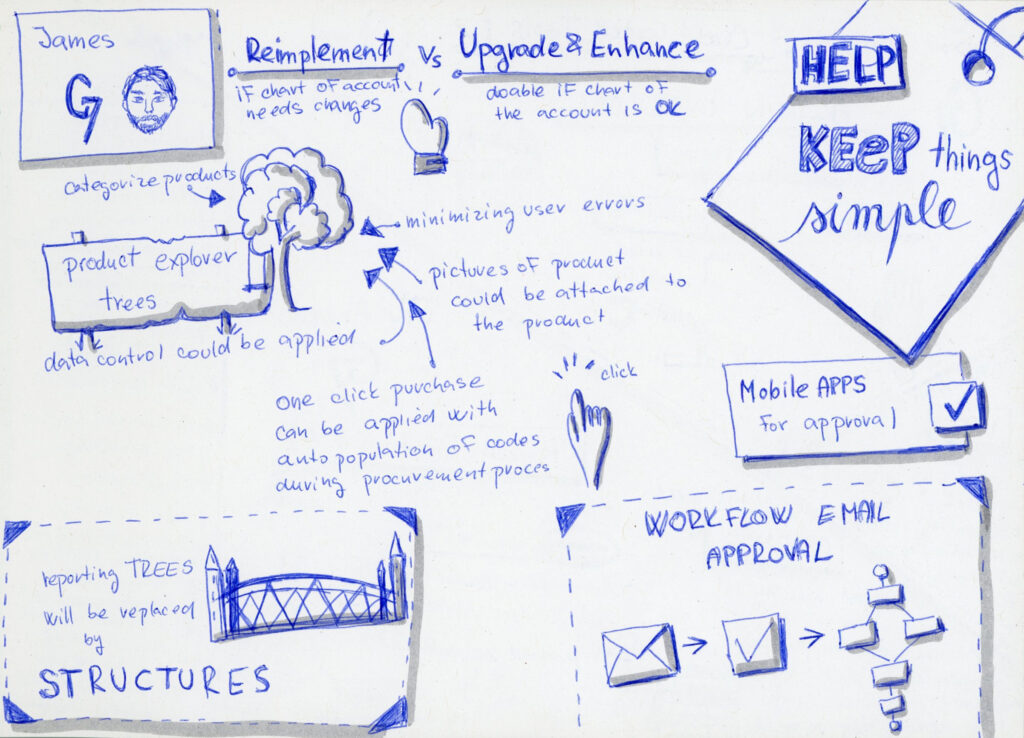 James
G7
Reimplement vs Upgrade & Enhance
if chart of account
needs changes
doable if chart of
the account is OK
HELP
KEEP things
simple
categorize products
minimizing user errors
product explover
trees
pictures of product
could be attached to
the product
data control could be applied
one click purchase
can be applied with
auto population of codes
during procurement proces
click
Mobile APPS
For approval
reporting TREES
will be replaced
by
STRUCTURES
WORKFLOW EMAIL
APPROVAL